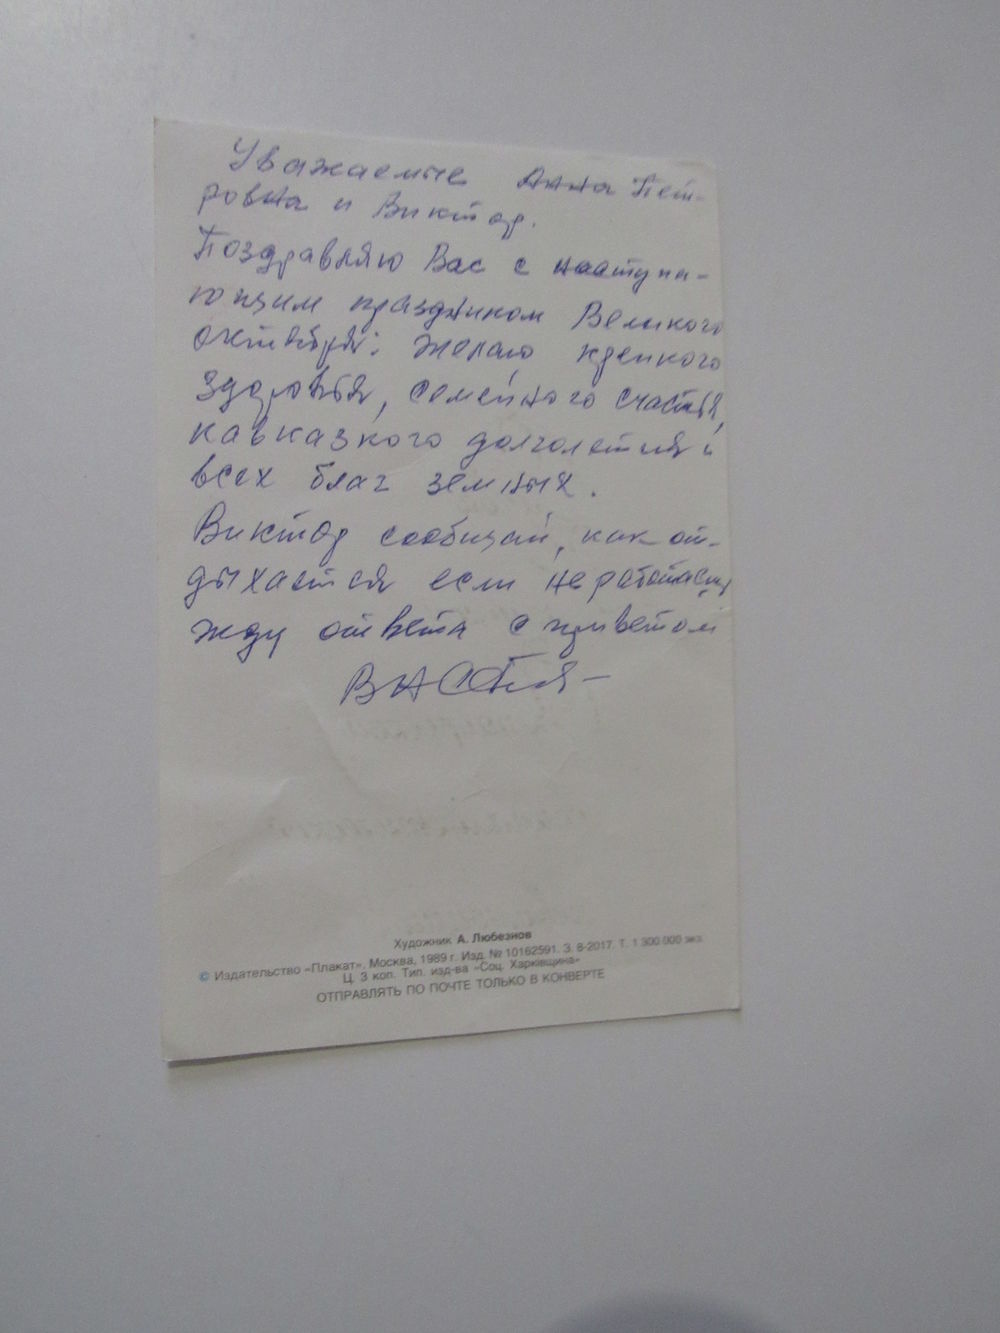 Уважаемые Анна Пет-
ровна и Виктор.
Поздравляю Вас с наступа-
ющим праздником Великого
октября. Желаю крепкого
здоровья, семейного счастья,
кавказкого долголетия и
всех благ земных.
Виктор сообщай, как от-
дыхается если не работаеш
жду ответа с приветом
Художник А. Любезнов
© Издательство «Плакат». Москва, 1989 г. Изд. № 10162591. З. 8-2017. Т. 1 300 000 экз.
Ц. 3 коп. Тип. изд-ва «Соц. Харкiвщина»
ОТПРАВЛЯТЬ ПО ПОЧТЕ ТОЛЬКО В КОНВЕРТЕ